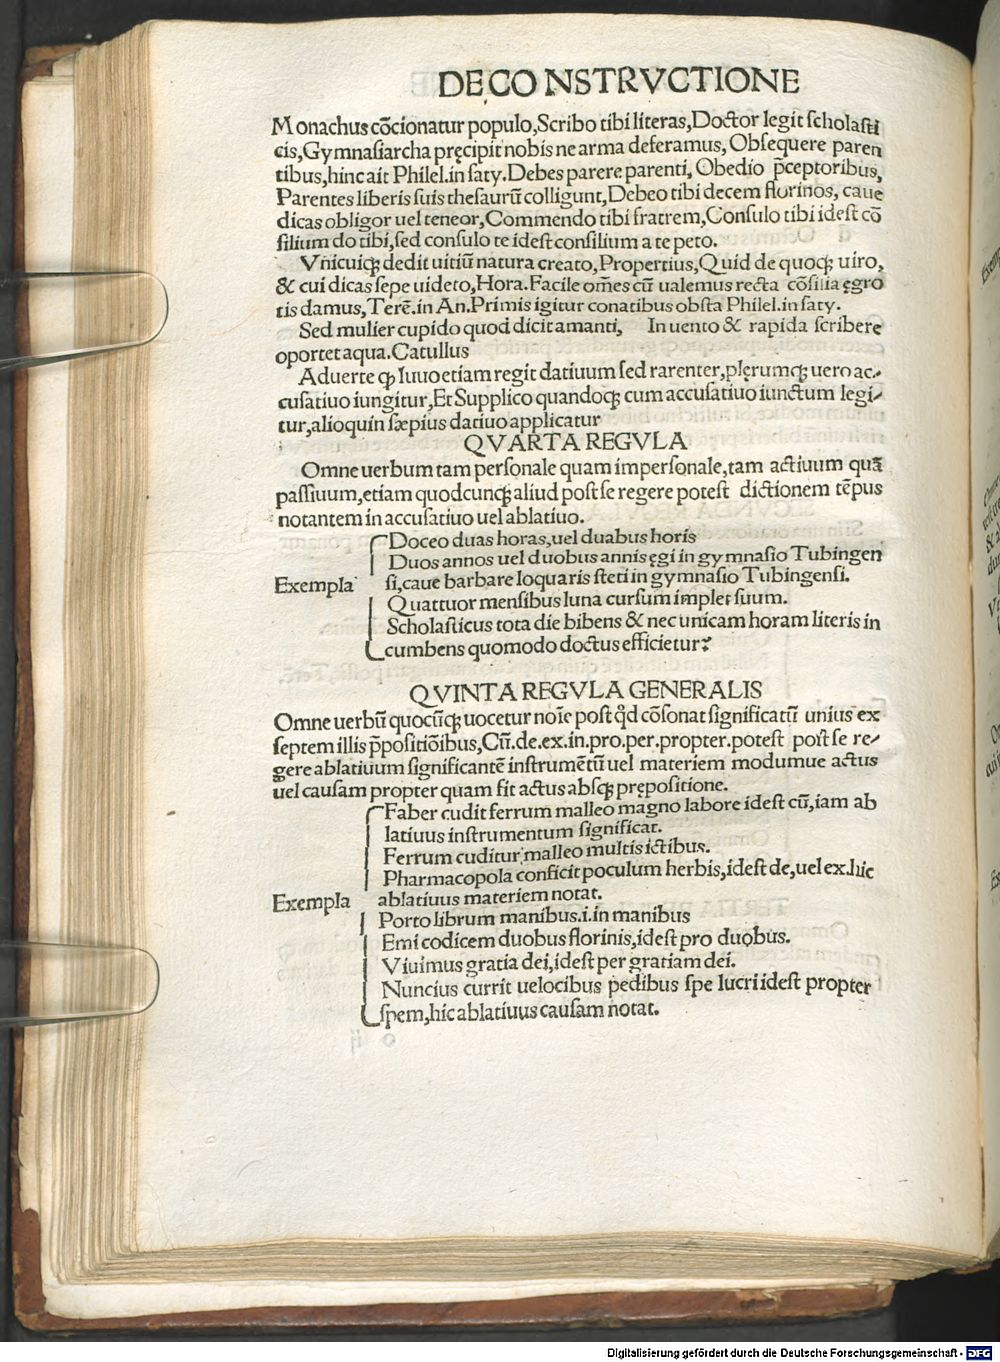 DE CONSTRVCTIONE
Monachus cōcionatur populo,Scribo tibi literas,Doctor legit scholasti
cis,Gymnasiarcha pręcipit nobis ne arma deferamus, Obsequere paren
tibus,hinc ait Philel.in saty.Debes parere parenti, Obedio p̄ceptoribus,
Parentes liberis suis thesaurū colligunt,Debeo tibi decem florinos, caue
dicas obligor uel teneor,Commendo tibi fratrem,Consulo tibi idest cō
silium do tibi,sed consulo te idest consilium a te peto.
Vnicuiqꝫ dedit uitiū natura creato,Propertius,Quid de quoqꝫ uiro,
& cui dicas sepe uideto,Hora.Facile om̄es cū ualemus recta cōsilia ęgro
tis damus,Terē.in An.Primis igitur conatibus obsta Philel.in saty.
Sed mulier cupido quod dicit amanti, In uento & rapida scribere
oportet aqua.Catullus
Aduerte ꝙ Iuuo etiam regit datiuum sed rarenter,plęrumqꝫ uero ac-
cusatiuo iungitur,Et Supplico quandoqꝫ cum accusatiuo iunctum legi-
tur,alioquin sæpius datiuo applicatur
QVARTA REGVLA
Omne uerbum tam personale quam impersonale,tam actiuum quā
passiuum,etiam quodcunqꝫ aliud post se regere potest dictionem tēpus
notantem in accusatiuo uel ablatiuo.
Doceo duas horas,uel duabus horis
Duos annos uel duobus annis ęgi in gymnasio Tubingen
Exempla si,caue barbare loquaris steti in gymnasio Tubingensi.
Quattuor mensibus luna cursum implet suum.
Scholasticus tota die bibens & nec unicam horam literis in
cumbens quomodo doctus efficietur?
QVINTA REGVLA GENERALIS
Omne uerbū quocūqꝫ uocetur noīe post qd̄ cōsonat significatū unius ex
septem illis p̄positiōibus,Cū.de.ex.in.pro.per.propter.potest post se re-
gere ablatiuum significantē instrumētū uel materiem modumue actus
uel causam propter quam fit actus absqꝫ prępositione.
Faber cudit ferrum malleo magno labore idest cū,iam ab
latiuus instrumentum significat.
Ferrum cuditur malleo multis ictibus.
Pharmacopola conficit poculum herbis,idest de,uel ex.hic
Exempla ablatiuus materiem notat.
Porto librum manibus.i.in manibus
Emi codicem duobus florinis,idest pro duobus.
Viuimus gratia dei,idest per gratiam dei.
Nuncius currit uelocibus pedibus spe lucri idest propter
spem,hic ablatiuus causam notat.
Digitalisierung gefördert durch die Deutsche Forschungsgemeinschaft - DFG